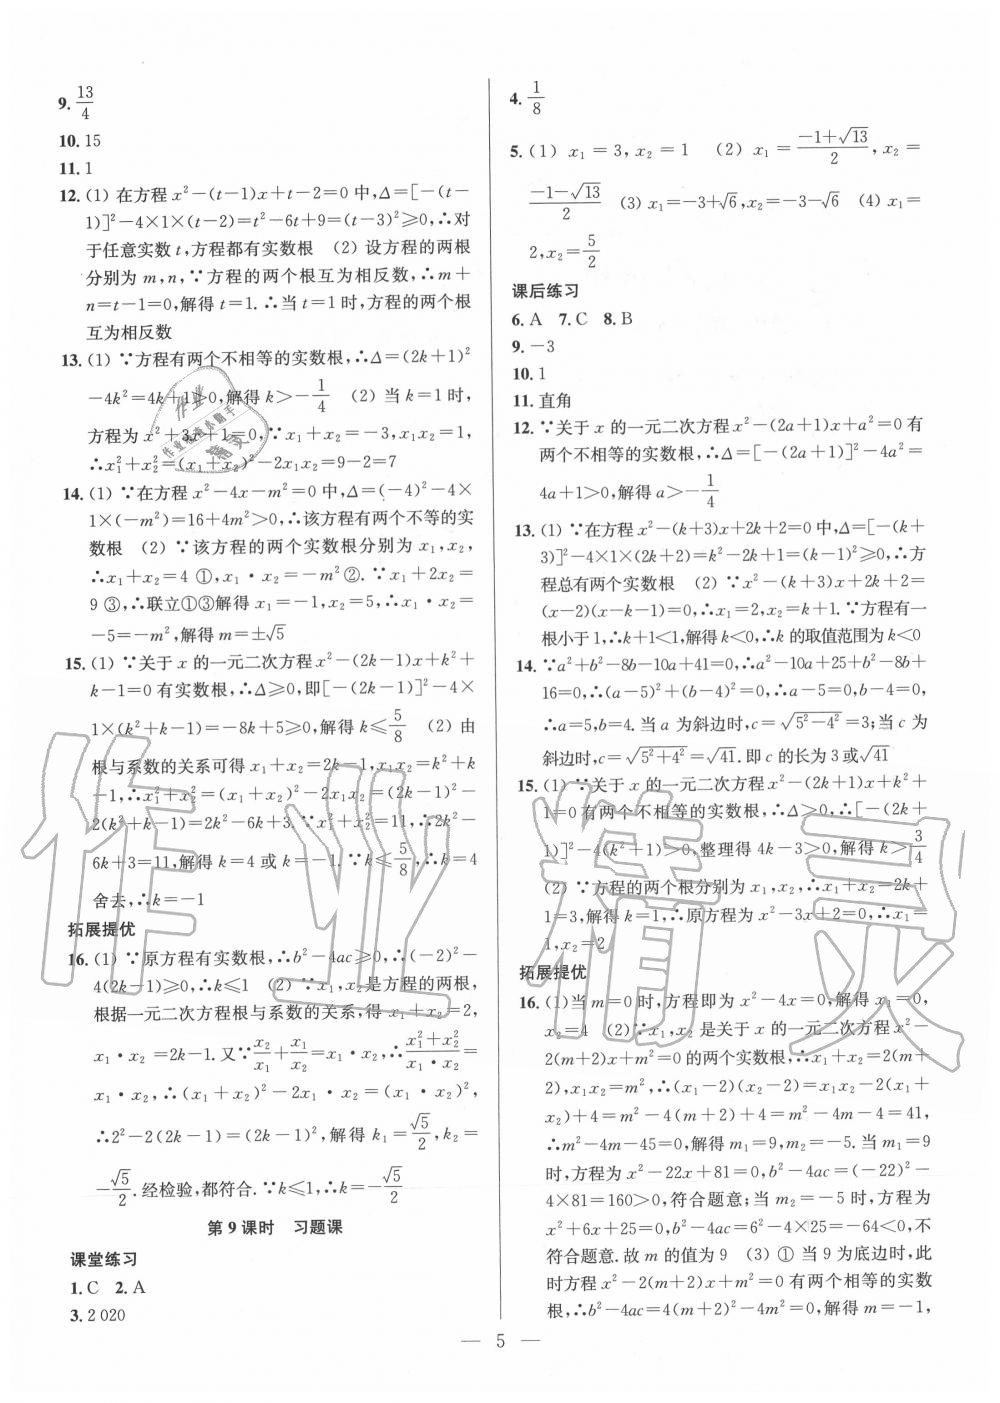 9. 13/4
10. 15
11. 1
12. (1) 在方程 x²−(t−1)x+t−2=0 中,Δ=[−(t−
1)]²−4×1×(t−2)=t²−6t+9=(t−3)²≥0,∴对
于任意实数 t,方程都有实数根 (2) 设方程的两根
分别为 m,n,∵方程的两个根互为相反数,∴m+
n=t−1=0,解得 t=1.∴当 t=1 时,方程的两个根
互为相反数
13. (1) ∵方程有两个不相等的实数根,∴Δ=(2k+1)²
−4k²=4k+1>0,解得 k>−1/4 (2) 当 k=1 时,
方程为 x²+3x+1=0,∵x₁+x₂=−3,x₁x₂=1,
∴x₁²+x₂²=(x₁+x₂)²−2x₁x₂=9−2=7
14. (1) ∵在方程 x²−4x−m²=0 中,Δ=(−4)²−4×
1×(−m²)=16+4m²>0,∴该方程有两个不等的实
数根 (2) ∵该方程的两个实数根分别为 x₁,x₂,
∴x₁+x₂=4 ①,x₁·x₂=−m² ②.∵x₁+2x₂=
9 ③,∴联立①③解得 x₁=−1,x₂=5,∴x₁·x₂=
−5=−m²,解得 m=±√5
15. (1) ∵关于 x 的一元二次方程 x²−(2k−1)x+k²+
k−1=0 有实数根,∴Δ≥0,即[−(2k−1)]²−4×
1×(k²+k−1)=−8k+5≥0,解得 k≤5/8 (2) 由
根与系数的关系可得 x₁+x₂=2k−1,x₁x₂=k²+k
−1,∴x₁²+x₂²=(x₁+x₂)²−2x₁x₂=(2k−1)²−
2(k²+k−1)=2k²−6k+3.∵x₁²+x₂²=11,∴2k²−
6k+3=11,解得 k=4 或 k=−1.∵k≤5/8,∴k=4
舍去,∴k=−1
拓展提优
16. (1) ∵原方程有实数根,∴b²−4ac≥0,∴(−2)²−
4(2k−1)≥0,∴k≤1 (2) ∵x₁,x₂是方程的两根,
根据一元二次方程根与系数的关系,得 x₁+x₂=2,
x₁·x₂=2k−1.又∵x₂/x₁+x₁/x₂=x₁·x₂,∴(x₁²+x₂²)/(x₁·x₂)=
x₁·x₂,∴(x₁+x₂)²−2x₁·x₂=(x₁·x₂)²,
∴2²−2(2k−1)=(2k−1)²,解得 k₁=√5/2,k₂=
−√5/2.经检验,都符合.∵k≤1,∴k=−√5/2
第 9 课时 习题课
课堂练习
1. C 2. A
3. 2 020
4. 1/8
5. (1) x₁=3,x₂=1 (2) x₁=(−1+√13)/2,x₂=
(−1−√13)/2 (3) x₁=−3+√6,x₂=−3−√6 (4) x₁=
2,x₂=5/2
课后练习
6. A 7. C 8. B
9. −3
10. 1
11. 直角
12. ∵关于 x 的一元二次方程 x²−(2a+1)x+a²=0 有
两个不相等的实数根,∴Δ=[−(2a+1)]²−4a²=
4a+1>0,解得 a>−1/4
13. (1) ∵在方程 x²−(k+3)x+2k+2=0 中,Δ=[−(k+
3)]²−4×1×(2k+2)=k²−2k+1=(k−1)²≥0,∴方
程总有两个实数根 (2) ∵x²−(k+3)x+2k+2=
(x−2)(x−k−1)=0,∴x₁=2,x₂=k+1.∵方程有一
根小于 1,∴k+1<1,解得 k<0,∴k 的取值范围为 k<0
14. ∵a²+b²−8b−10a+41=0,∴a²−10a+25+b²−8b+
16=0,∴(a−5)²+(b−4)²=0,∴a−5=0,b−4=0,
∴a=5,b=4.当 a 为斜边时,c=√(5²−4²)=3;当 c 为
斜边时,c=√(5²+4²)=√41.即 c 的长为 3 或√41
15. (1) ∵关于 x 的一元二次方程 x²−(2k+1)x+k²+
1=0 有两个不相等的实数根,∴Δ>0,∴[−(2k+
1)]²−4(k²+1)>0,整理得 4k−3>0,解得 k>3/4
(2) ∵方程的两个根分别为 x₁,x₂,∴x₁+x₂=2k+
1=3,解得 k=1,∴原方程为 x²−3x+2=0,∴x₁=
1,x₂=2
拓展提优
16. (1)当 m=0 时,方程即为 x²−4x=0,解得 x₁=0,
x₂=4 (2)∵x₁,x₂ 是关于 x 的一元二次方程 x²−
2(m+2)x+m²=0 的两个实数根,∴x₁+x₂=2(m+
2),x₁x₂=m²,∴(x₁−2)(x₂−2)=x₁x₂−2(x₁+
x₂)+4=m²−4(m+2)+4=m²−4m−4=41,
∴m²−4m−45=0,解得 m₁=9,m₂=−5.当 m₁=9
时,方程为 x²−22x+81=0,b²−4ac=(−22)²−
4×81=160>0,符合题意;当 m₂=−5 时,方程为
x²+6x+25=0,b²−4ac=6²−4×25=−64<0,不
符合题意.故 m 的值为 9 (3) ① 当 9 为底边时,此
时方程 x²−2(m+2)x+m²=0 有两个相等的实数
根,∴b²−4ac=4(m+2)²−4m²=0,解得 m=−1,
— 5 —
作业精灵